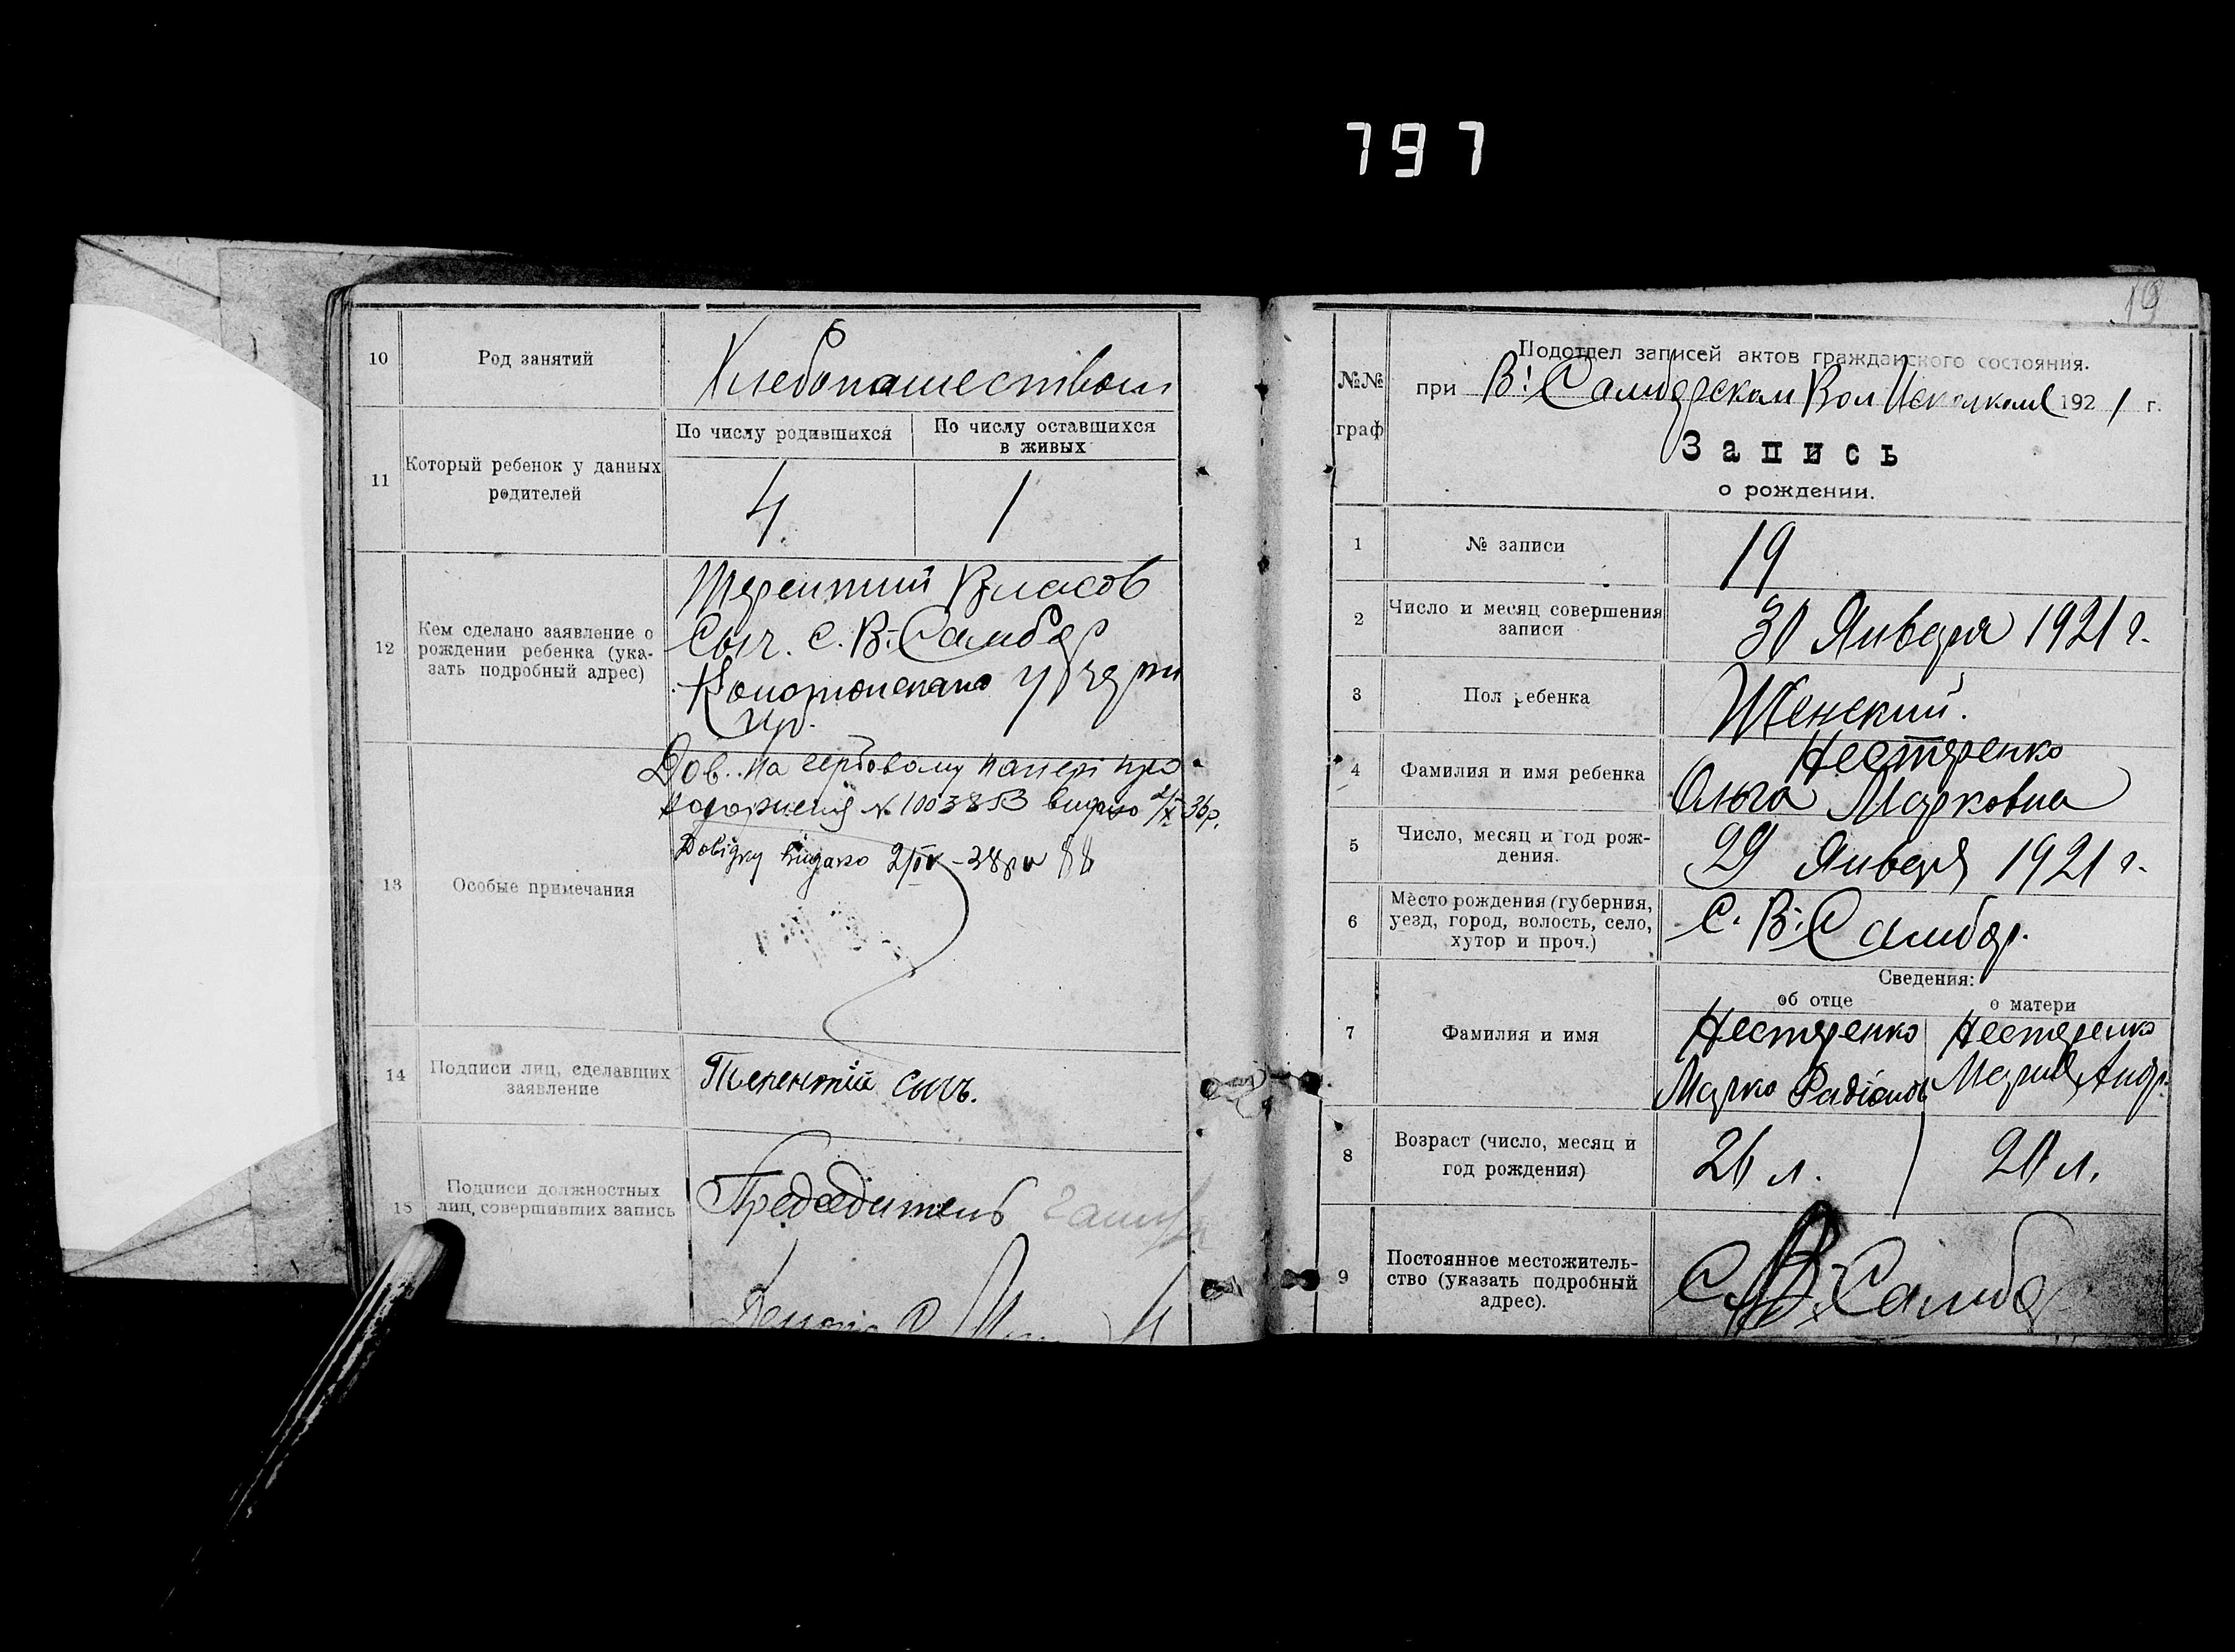 797
10
Род занятий
Хлебопашеством
11
Который ребенок у данных
родителей
По числу родившихся
По числу оставшихся
в живых
4
1
12
Кем сделано заявление о
рождении ребенка (ука-
зать подробный адрес)
Терентий Власов
Сыч. С. В. Самбор
Конотопскаго
13
Особые примечания
Дов. на гербовому папері про
народження № 1003853 видано 36р.
Довідку видано
14
Подписи лиц, сделавших
заявление
Терентій Сычъ.
15
Подписи должностных
лиц, совершивших запись
Председатель
19
№№
граф
Подотдел записей актов гражданского состояния.
при В: Самборском Вол Исполкоме 1921 г.
Запись
о рождении.
1
№ записи
19
2
Число и месяц совершения
записи
30 Января 1921 г.
3
Пол ребенка
Женский.
4
Фамилия и имя ребенка
Нестеренко
Ольга Марковна
5
Число, месяц и год рож-
дения.
29 Января 1921 г.
6
Место рождения (губерния,
уезд, город, волость, село,
хутор и проч.)
С. В. Самбор.
Сведения:
об отце
о матери
7
Фамилия и имя
Нестеренко
Марко Радіонов
Нестеренко
Мария Андр.
8
Возраст (число, месяц и
год рождения)
26 л.
20 л.
9
Постоянное местожитель-
ство (указать подробный
адрес).
С. В. Самбор